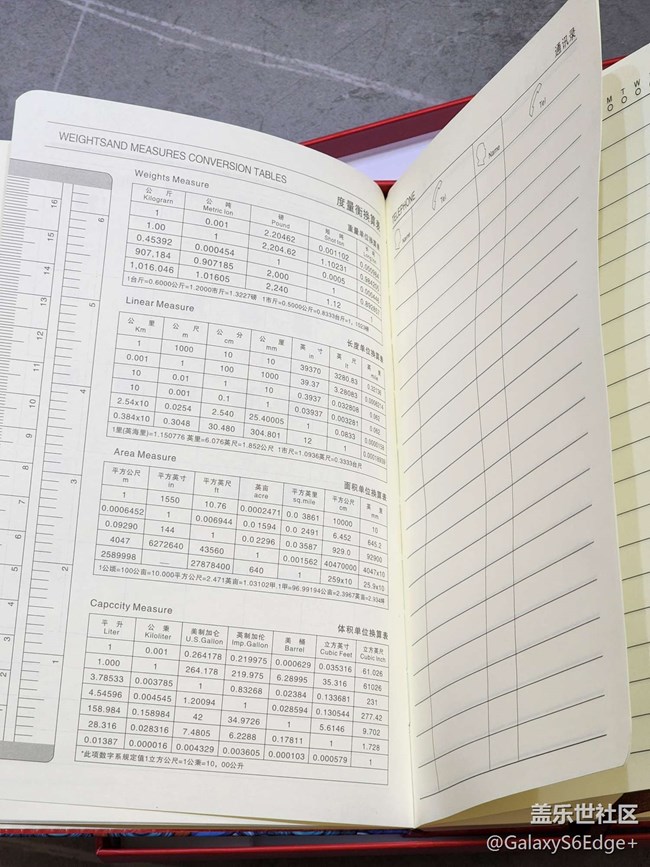 WEIGHTSAND MEASURES CONVERSION TABLES
度量衡换算表
Weights Measure 重量单位换算表
公斤 公吨 磅
Kilogram Metric Ion Pound Shot Ion
1 0.001 2.20462 0.001102
1.00 1 2,204.62 1.10231
0.45392 0.000454 1 0.0005
907,184 0.907185 2,000 1
1,016.046 1.01605 2,240 1.12 1
1台斤=0.6000公斤=1.2000市斤=1.3227磅 1市斤=0.5000公斤=0.8333台斤=1,1023磅
Linear Measure 长度单位换算表
公里 公尺 公分 公厘 英寸 英尺
Km m cm mm in ft
1 1000 10 10 39370 3280.83
0.001 1 100 1000 39.37 3.28083
10 0.01 1 10 0.3937 0.032808
10 0.001 0.1 1 0.03937 0.003281
2.54x10 0.0254 2.540 25.40005 1 0.0833
0.384x10 0.3048 30.480 304.801 12 1
1里(英海里)=1.150776 英里=6.076英尺=1.852公尺 1市尺=1.0936英尺=0.3333台尺
Area Measure 面积单位换算表
平方公尺 平方英寸 平方英尺 英亩 平方英里 平方公尺
m in ft acre sq.mile cm mm
1 1550 10.76 0.0002471 0.0 3861 10000 10
0.0006452 1 0.006944 0.0 1594 0.0 2491 6.452 645.2
0.09290 144 1 0.0 2296 0.0 3587 929.0 92900
4047 6272640 43560 1 0.001562 40470000 4047x10
2589998 — 27878400 640 1 259x10 25.9x10
1公顷=100公亩=10.000平方公尺=2.471英亩=1.03102甲,1甲=96.99194公亩=2.3967英亩=2.934坪
Capccity Measure 体积单位换算表
平升 公乘 美制加仑 英制加伦 美桶 立方英寸 立方英尺
Liter Kiloliter U.S.Gallon Imp.Gallon Barrel Cubic Feet Cubic Inch
1 0.001 0.264178 0.219975 0.000629 0.035316 61.026
1.000 1 264.178 219.975 6.28995 35.316 61026
3.78533 0.003785 1 0.83268 0.02384 0.133681 231
4.54596 0.004545 1.20094 1 0.028594 0.130544 277.42
158.984 0.158984 42 34.9726 1 5.6146 9.702
28.316 0.028316 7.4805 6.2288 0.17811 1 1.728
0.01387 0.000016 0.004329 0.003605 0.000103 0.000579 1
*此项数字系规定值1立方公尺=1公乘=10，00公升
16
15
14
13
12
11
10
9
8
7
6
5
4
3
2
1
6
5
4
3
2
1
通讯录
TELEPHONE
Name Tel Name Tel
M T W
盖乐世社区
@GalaxyS6Edge+